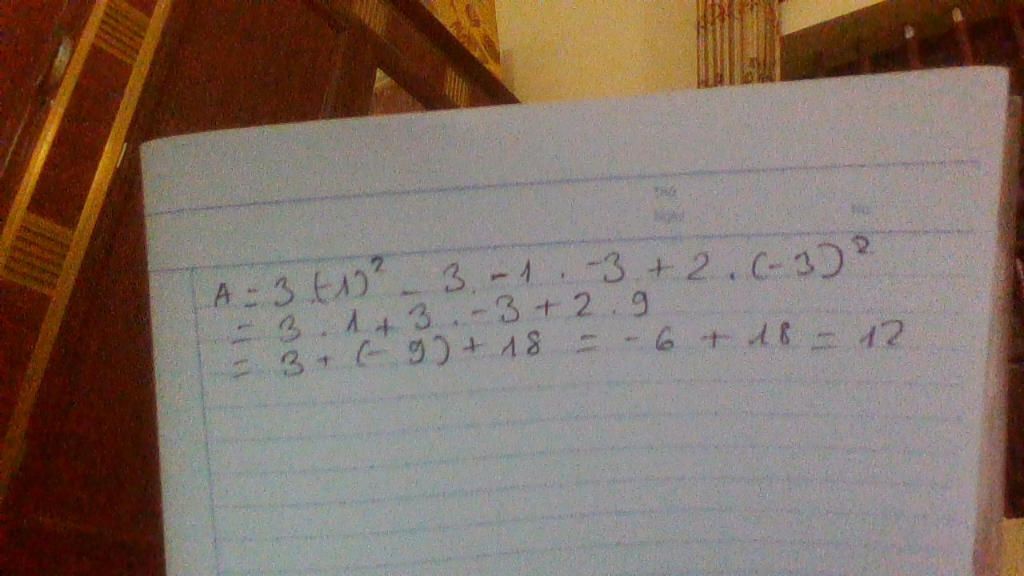 Thứ
Ngày No.
A = 3.(-1)² - 3.-1.-3 + 2.(-3)²
= 3.1 + 3.-3 + 2.9
= 3 + (-9) + 18 = -6 + 18 = 12